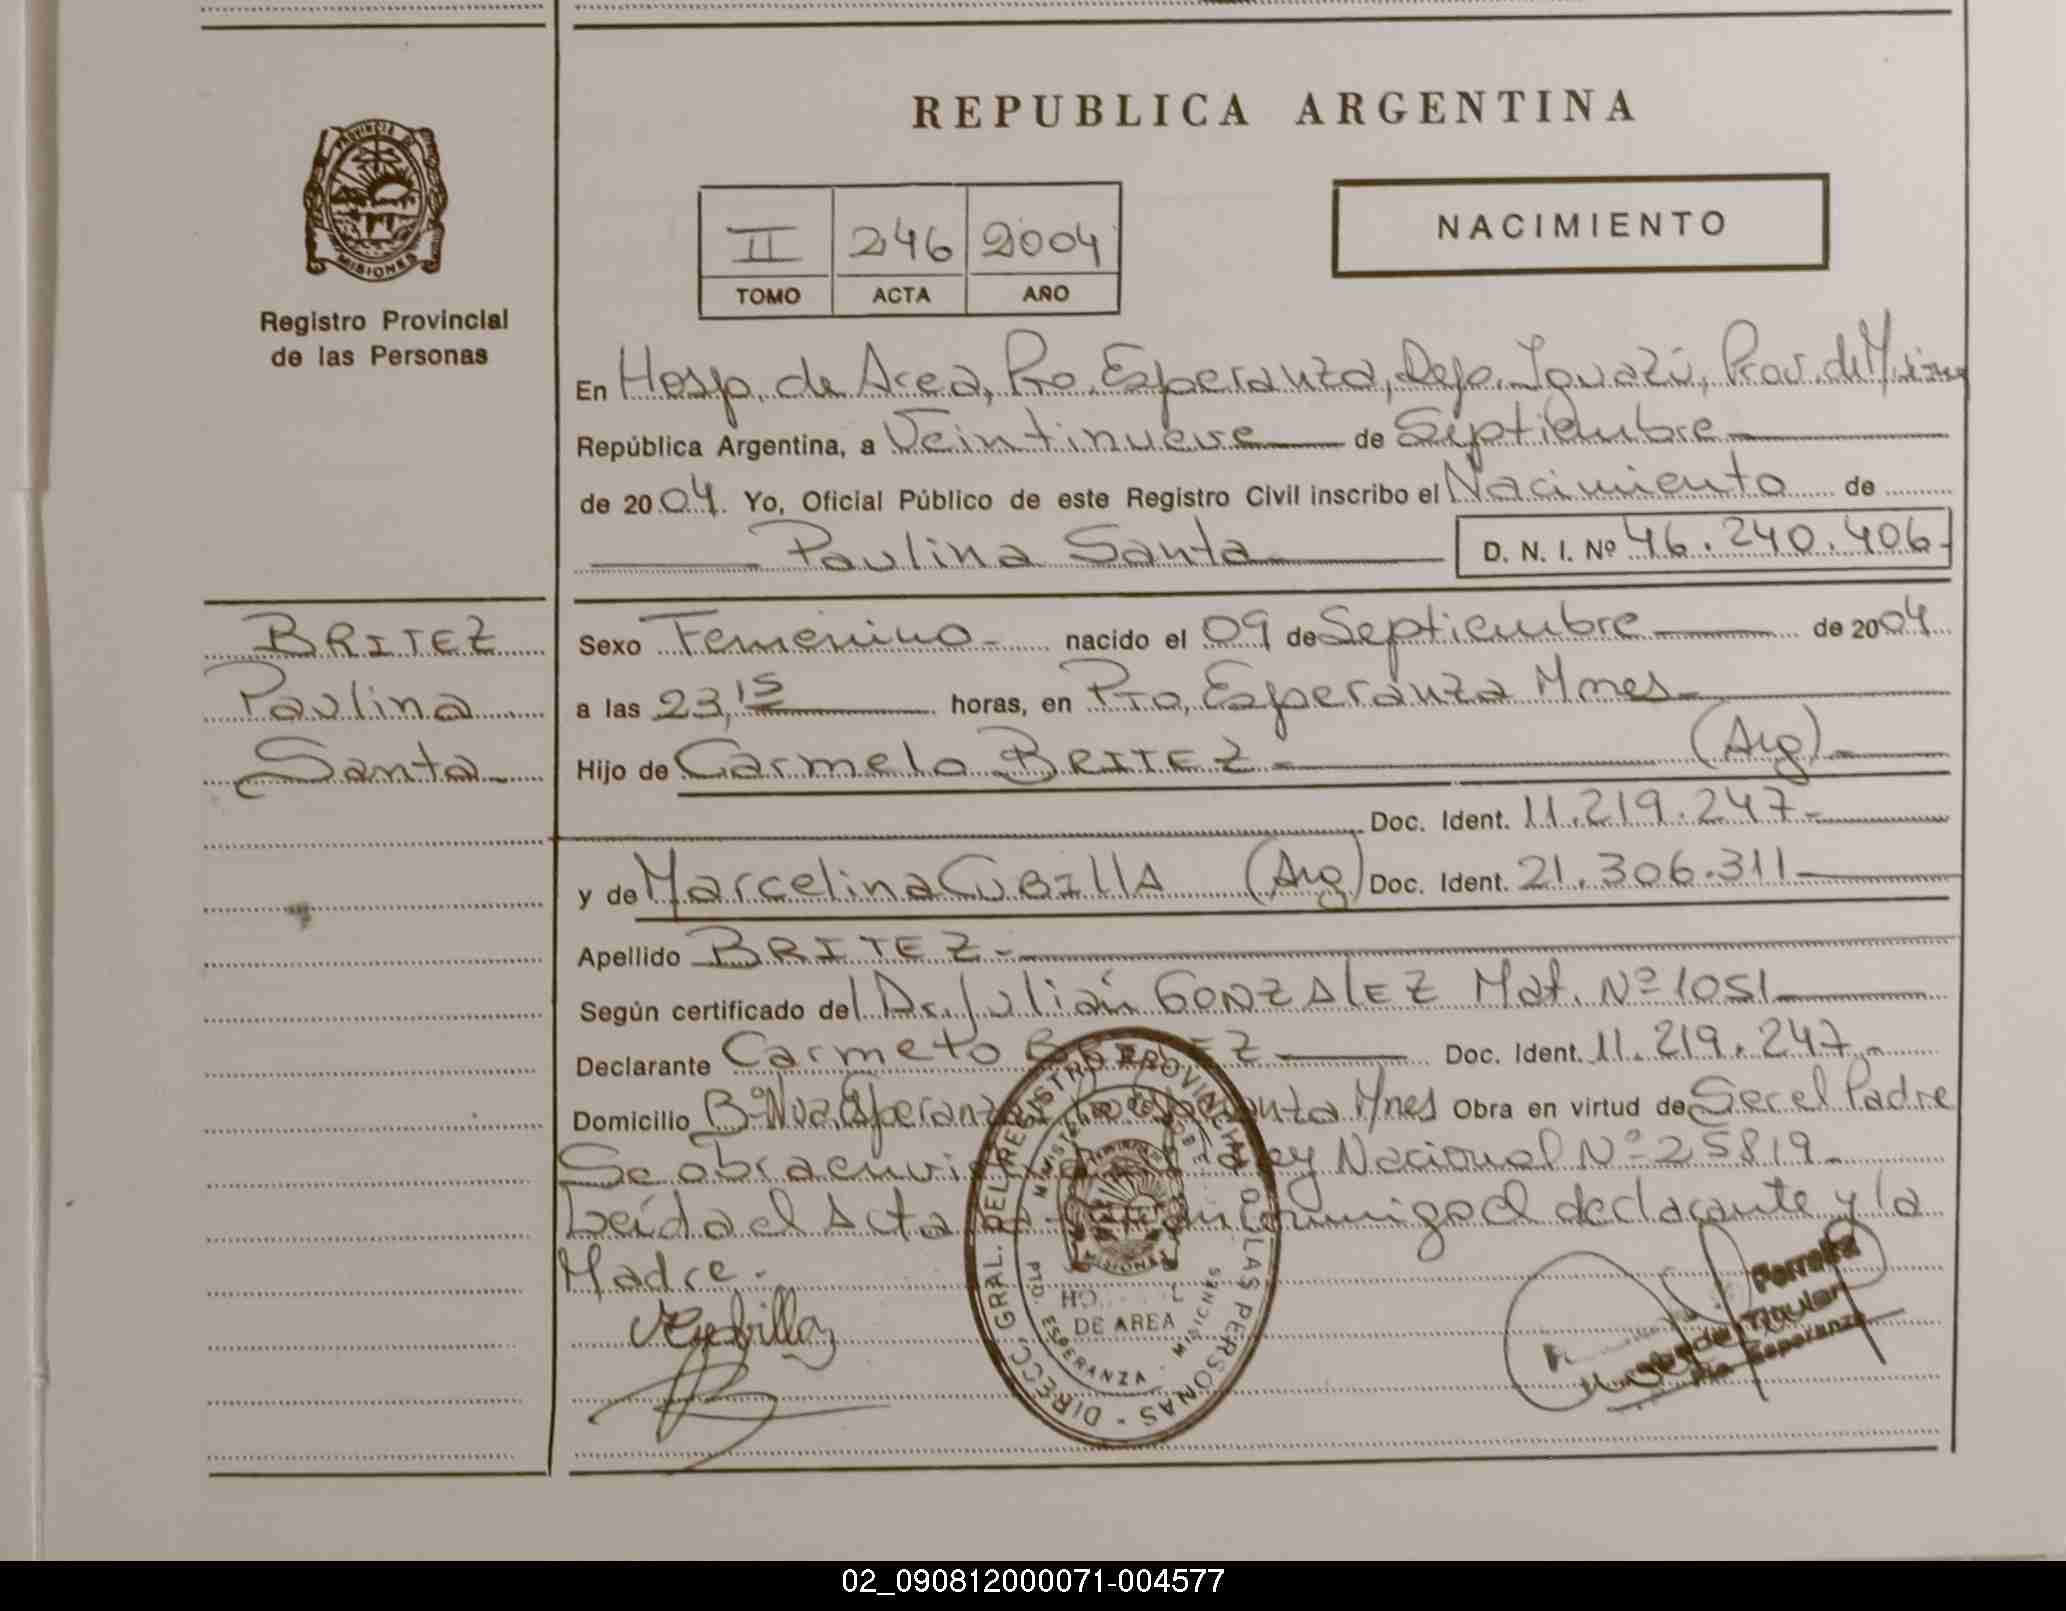 REPUBLICA ARGENTINA
PROVINCIA DE
MISIONES
Registro Provincial
de las Personas
II 246 2004
TOMO ACTA AÑO
NACIMIENTO
En Hosp. de Area, Pto. Esperanza, Depo. Iguazú, Prov. de Misiones
República Argentina, a Veintinueve de Septiembre
de 2004. Yo, Oficial Público de este Registro Civil inscribo el Nacimiento de
Paulina Santa D. N. I. Nº 46.240.406-
BRITEZ
Paulina
Santa-
Sexo Femenino- nacido el 09 de Septiembre de 2004
a las 23,15 horas, en Pto. Esperanza Mnes-
Hijo de Carmelo BRITEZ- (Arg)-
Doc. Ident. 11.219.247-
y de Marcelina CUBILLA (Arg) Doc. Ident. 21.306.311-
Apellido BRITEZ-
Según certificado del Dr. Julián GONZALEZ Mat. Nº 1051-
Declarante Carmelo BRITEZ Doc. Ident. 11.219.247-
Domicilio Bº Nva. Esperanza Mnes Obra en virtud de Ser el Padre
Se obra en Ley Nacional Nº 25819-
Leída el Acta conmigo el declarante y la
Madre.
DIRECC. GRAL. DEL REGISTRO PROVINCIAL DE LAS PERSONAS
MISIONES
DE AREA
PTO. ESPERANZA - MISIONES
Titular
Pto. Esperanza
02_090812000071-004577